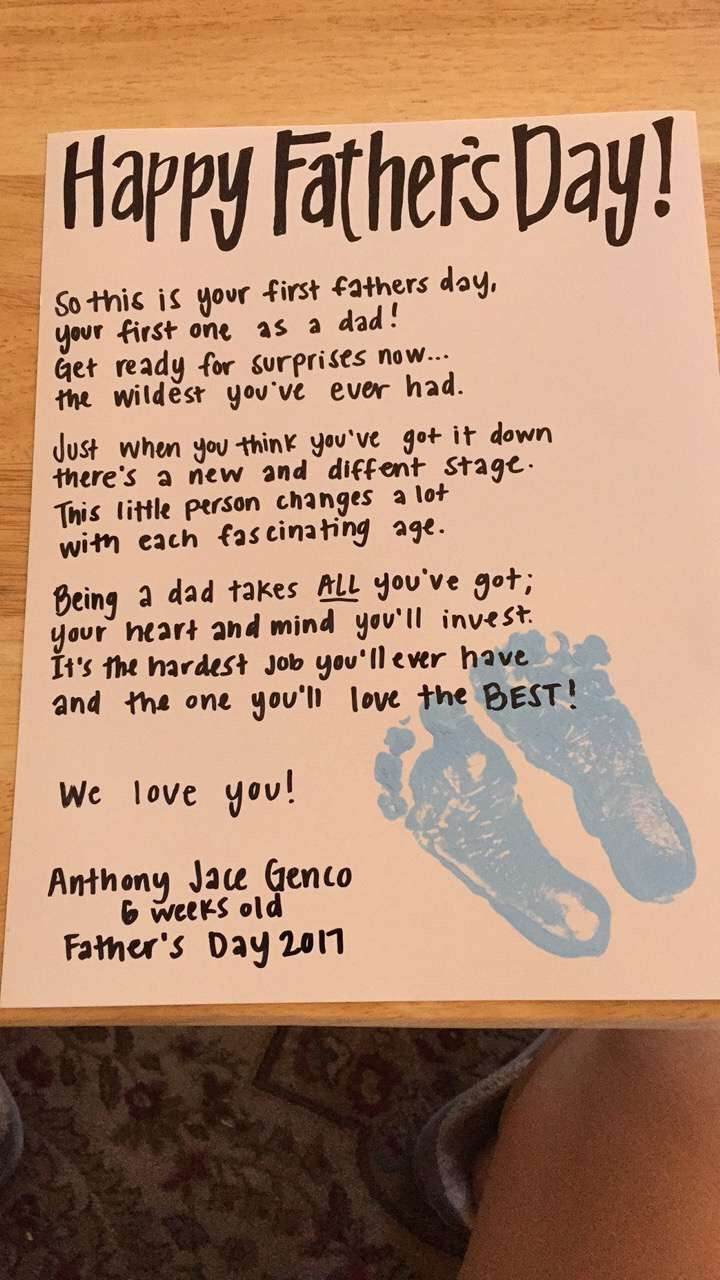 Happy Father's Day!
So this is your first fathers day,
your first one as a dad!
Get ready for surprises now...
the wildest you've ever had.
Just when you think you've got it down
there's a new and diffent stage.
This little person changes a lot
with each fascinating age.
Being a dad takes ALL you've got;
your heart and mind you'll invest.
It's the hardest job you'll ever have
and the one you'll love the BEST!
We love you!
Anthony Jace Genco
6 weeks old
Father's Day 2017